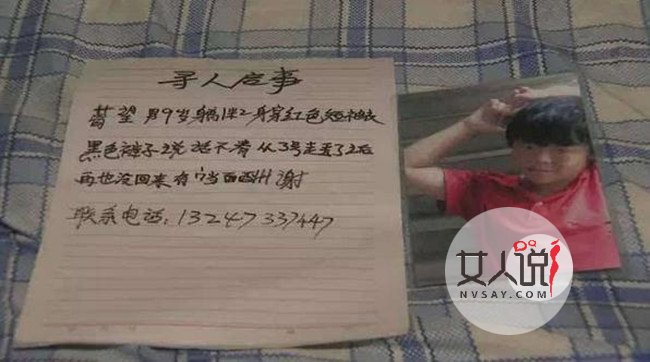 寻人启事
望 男9岁 身高1米2 身穿红色短袖衣
黑色裤子 说话不清 从3号走丢了之后
再也没回来 有 当面酬谢
联系电话：13247337447
女人说
NVSAY.COM